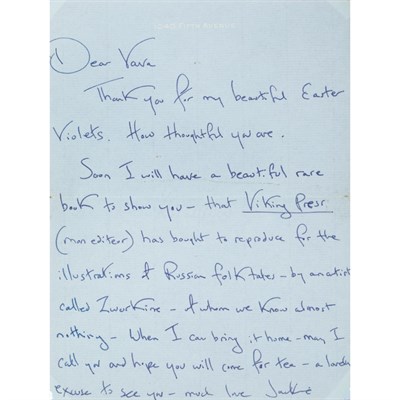 Dear Vava
Thank you for my beautiful Easter
Violets. How thoughtful you are.
Soon I will have a beautiful rare
book to show you - that Viking Press
(mon editor) has bought to reproduce for the
illustrations of Russian folk tales - by an artist
called Zworkine - of whom we know almost
nothing - When I can bring it home - may I
call you and hope you will come for tea - a lovely
excuse to see you - much love Jackie